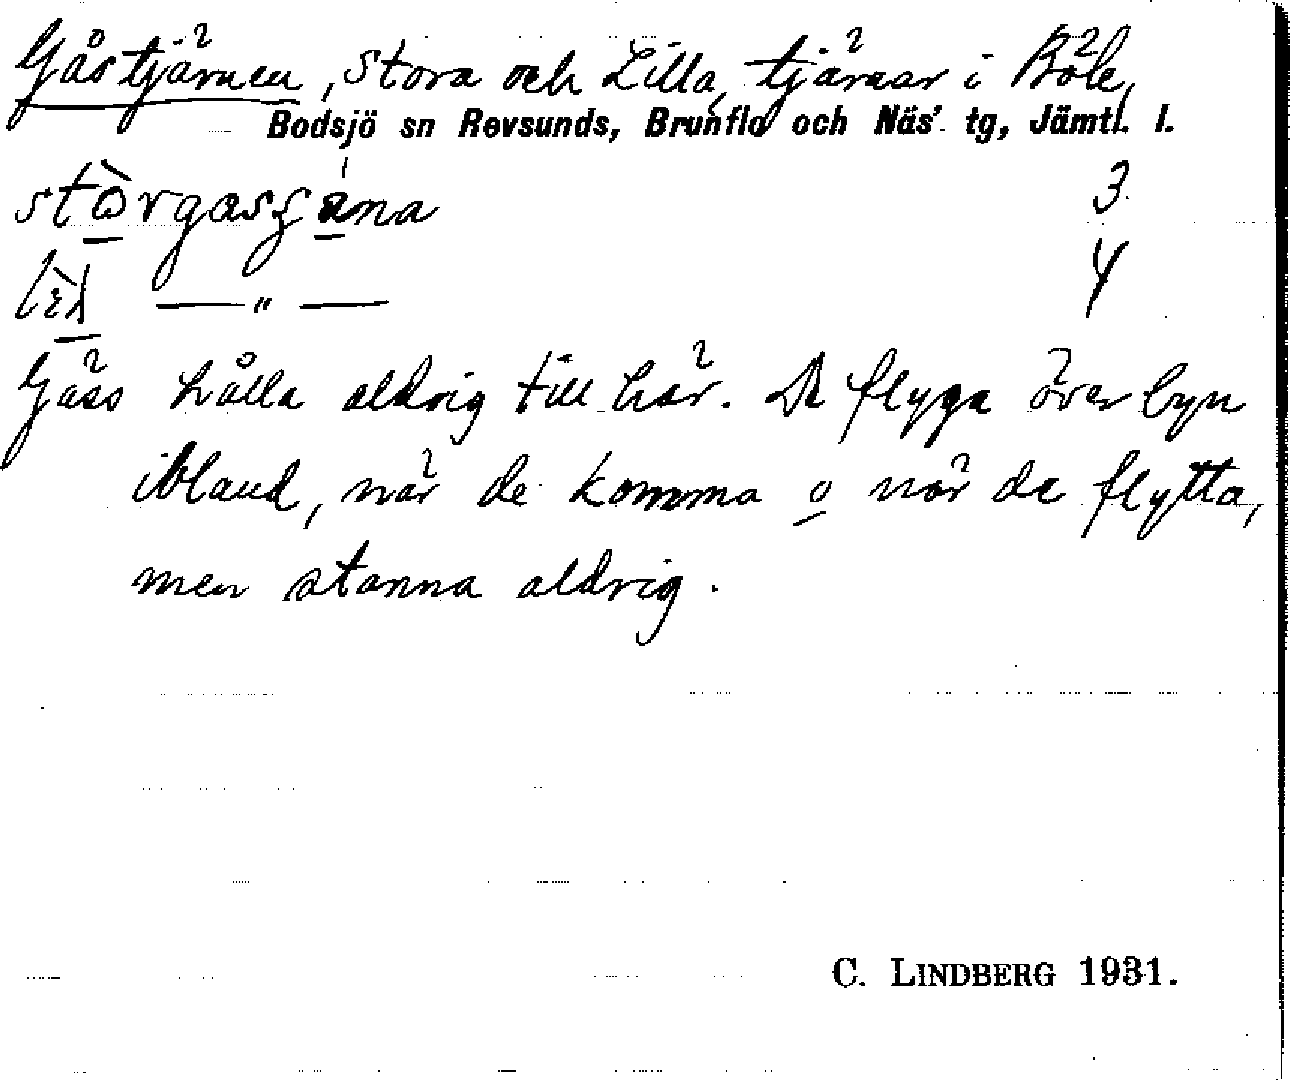 Gåstjärnen, Stora och Lilla, tjärnar i Böle,
Bodsjö sn Revsunds, Brunflo och Näs' tg, Jämtl. l.
3
4
Gäss hålla aldrig till här. De flyga över byn
ibland, när de komma o när de flytta,
men stanna aldrig.
C. LINDBERG 1931.